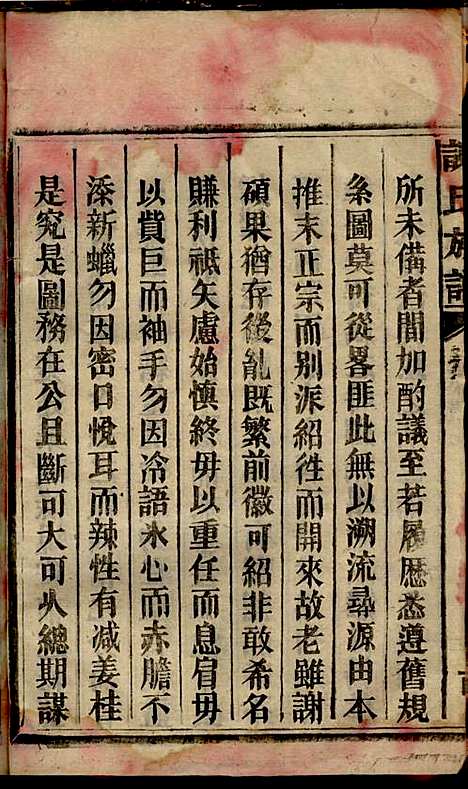 所未備者間加酌議至若履歷悉遵舊規
糸圖莫可從畧匪此無以溯流尋源由本
推末正宗而别派紹徃而開來故老雖謝
碩果猶存後亂既繁前徽可紹非敢希名
賺利祗矢慮始慎終毋以重任而息肩毋
以貲巨而袖手勿因冷語氷心而赤膽不
添新蠟勿因密口悅耳而辣性有减姜桂
是究是圖務在公且斷可大可乆總期謀
氏族譜